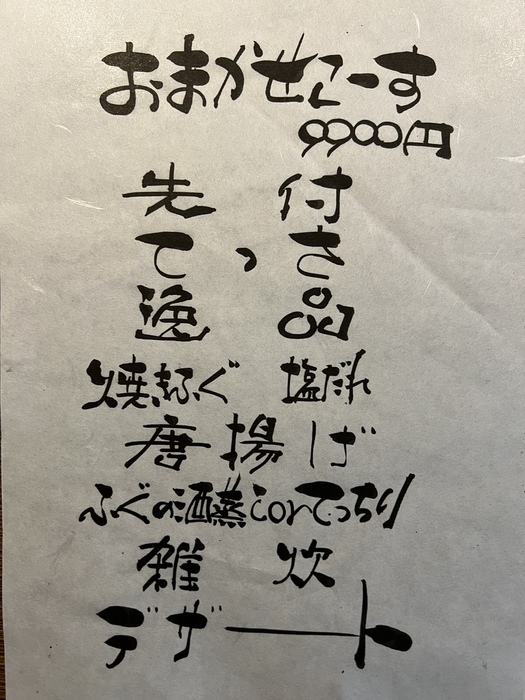 おまかせこーす
9900円
先付
てっさ
逸品
焼ふぐ 塩だれ
唐揚げ
ふぐの酒蒸しorてっちり
雑炊
デザート